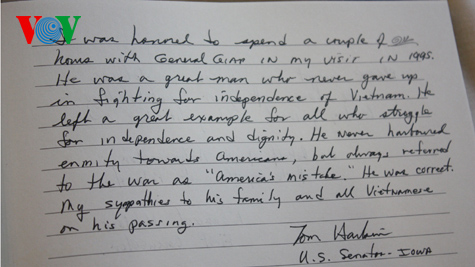 VOV
I was honored to spend a couple of
hours with General Giap in my visit in 1995.
He was a great man who never gave up
in fighting for independence of Vietnam. He
left a great example for all who struggle
for independence and dignity. He never harboured
enmity towards Americans, but always referred
to the war as "America's mistake." He was correct.
My sympathies to his family and all Vietnamese
on his passing.
Tom Harkin
U.S. Senator - Iowa